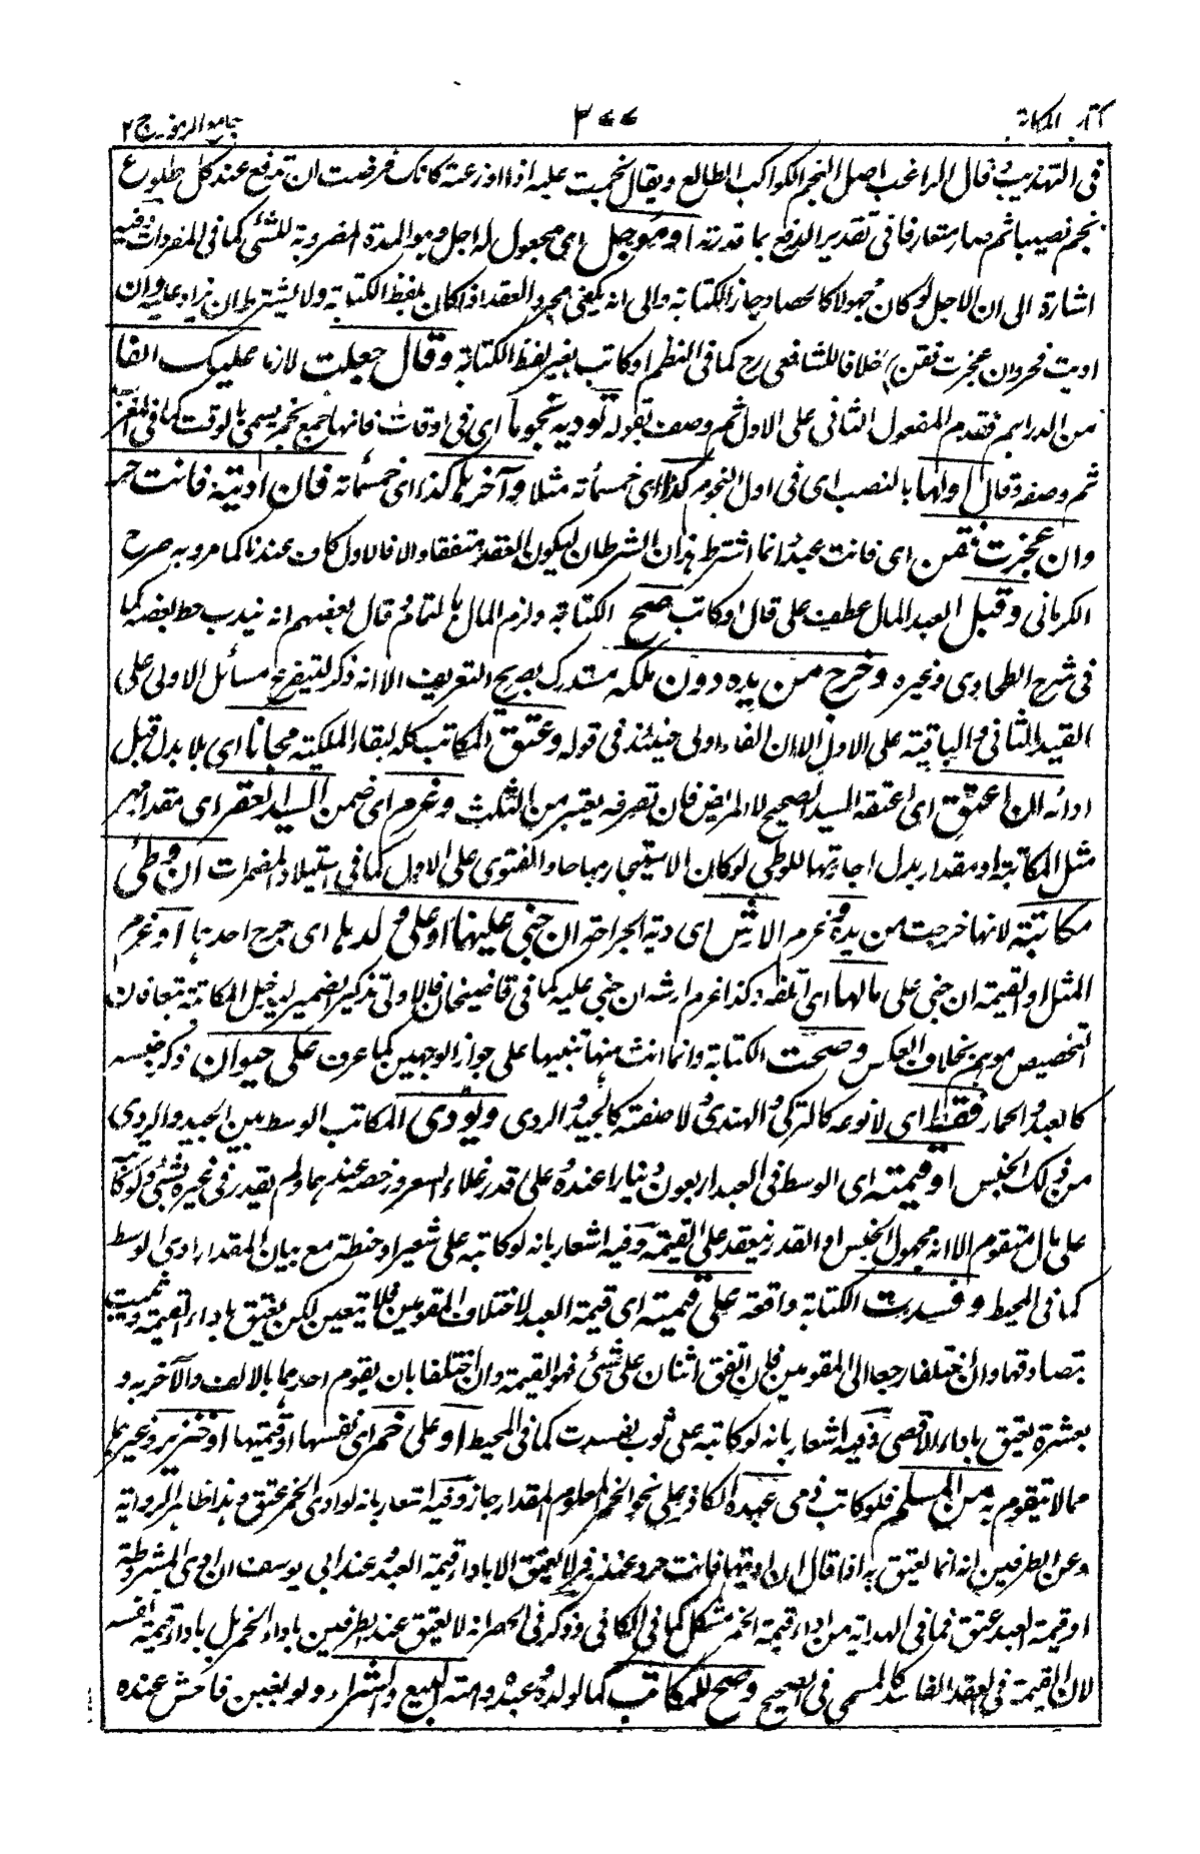 كتاب المكاتب ٣٧٧ جامع الرموز ج ٢
فى التهذيب وقال الراغب اصل النجم الكواكب الطالع ويقال نجمت عليه اذا وزعته كانك فرضت ان تدفع عند كل طلوع
نجم نصيبا ثم صار متعارفا فى تقدير الدفع بما قدرته او مؤجل اى مجعول له اجل وهو المدة المضروبة للشئ كما فى المفردات وفيه
اشارة الى ان الاجل لو كان مجهولا كالحصاد جاز الكتابة والى انه يكفى مجرد العقد اذا كان بلفظ الكتابة ولا يشترط ان يزاد عليه وان
اديت فحر وان عجزت فقن خلافا للشافعى رح كما فى النظم او كاتب بغير لفظ الكتابة وقال جعلت لازما عليك الفا
من الدراهم فقدم المفعول الثانى على الاول ثم وصف بقوله تؤديه نجوما اى فى اوقات فانها جمع نجم يسمى بالوقت كما فى المغرب
ثم وصفه وقال اولها بالنصب اى فى اول النجوم كذا اى خمسمائة مثلا وآخرها كذا اى خمسمائة فان اديته فانت حر
وان عجزت فقن اى فانت عبد وانما اشترط هذان الشرطان ليكون العقد متفقا والا فالاول كاف عندنا كما مر وبه صرح
الكرمانى وقبل العبد المال عطف على قال او كاتب صح الكتابة ولزم المال بالتمام وقال بعضهم انه يندب حط بعضه كما
فى شرح الطحاوى وغيره وخرج من يده دون ملكه مستدرك بصريح التعريف الا انه ذكر لتفريع مسائل الاولى على
القيد الثانى والباقية على الاول الا ان الفاء اولى حينئذ فى قوله وعتق المكاتب كله لبقاء الملكية مجانا اى بلا بدل قبل
ادائه ان اعتق اى اعتقه السيد الصحيح لا المريض فان تصرفه يعتبر من الثلث وغرم اى ضمن السيد العقر اى مقدار مهر
مثل المكاتبة او مقدار بدل اجارتها للوطى لو كان الاستيجار مباحا والفتوى على الاول كما فى استيلاد المضمرات ان وطئ
مكاتبته لانها خرجت من يده وغرم الارش اى دية الجراحة ان جنى عليها او على ولدها اى جرح احدهما او غرم
المثل او القيمة ان جنى على مالها اى اتلفه وكذا غرم ارشه ان جنى عليه كما فى قاضيخان فالاولى تذكير الضمير ليدخل المكاتبة تبعا فان
التخصيص موهم بخلاف العكس وصحت الكتابة وانما انث منها تنبيها على جواز الوجهين كما عرف على حيوان ذكر جنسه
كالعبد والحمار فقط اى لا نوعه كالتركى والهندى ولا صفته كالجيد والردى ويؤدى المكاتب الوسط بين الجيد والردى
من ذلك الجنس او قيمته اى الوسط فى العبد اربعون دينارا عنده وعلى قدر غلاء السعر ورخصه عندهما ولم يقدر فى غيره بشئ ولو كان
على مال متقوم الا انه مجهول الجنس او القدر ينعقد على القيمة وفيه اشعار بانه لو كاتبه على شعير او حنطة مع بيان المقدار ادى الوسط
كما فى المحيط وفسدت الكتابة واقعة على قيمته اى قيمة العبد لاختلاف المقومين فلا يتعين لكن يعتق باداء القيمة ويثبت
بتصادقهما وان اختلفا رجعا الى المقومين فان اتفق اثنان على شئ فهو القيمة وان اختلفا بان يقوم احدهما بالالف والآخر به و
بعشرة يعتق باداء الاقصى وفيه اشعار بانه لو كاتبه على ثوب يفسدت كما فى المحيط او على خمر اى نفسها او قيمتها او خنزير وغيرهما
مما لا يتقوم به من المسلم فلو كاتب ذمى عبده الكافر على نحو الخمر المعلوم المقدار جاز وفيه اشعار بانه لو ادى الخمر عتق وهذا ظاهر الرواية
وعن الطرفين انه انما يعتق به اذا قال ان اديتها فانت حر وعند زفر لا يعتق الا باداء قيمة العبد وعند ابى يوسف ان ادى المشروط
او قيمة العبد عتق فما فى الهداية من اداء قيمة الخمر مشكل كما فى الكافى وذكر فى الحصر انه لا يعتق عند الطرفين باداء الخمر بل باداء قيمة نفسه
لان القيمة فى العقد الفاسد كالمسمى فى الصحيح وصح للمكاتب كما لولده وعبده وامته البيع والشراء ولو بغبن فاحش عنده